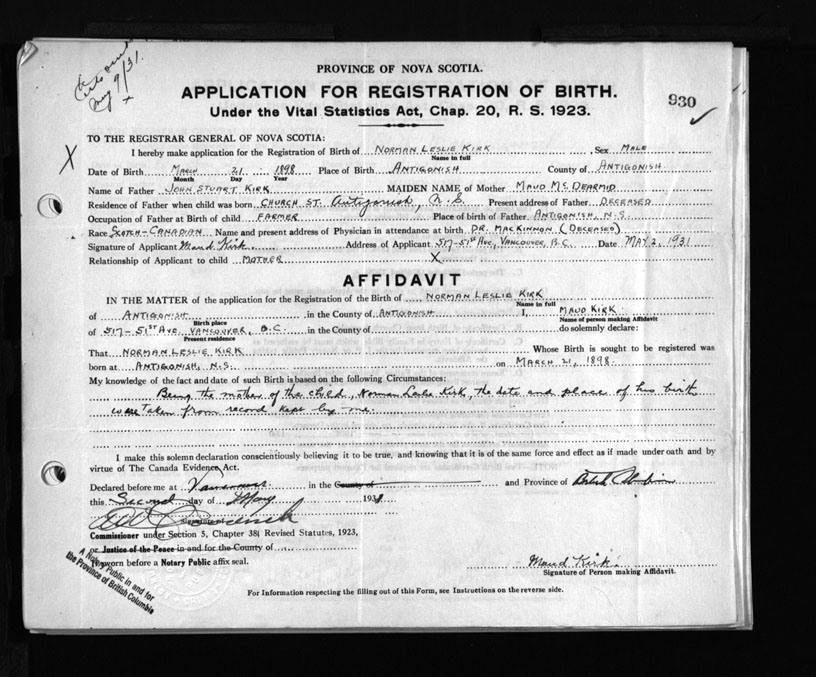 May 9/31.
PROVINCE OF NOVA SCOTIA.
APPLICATION FOR REGISTRATION OF BIRTH.
930
Under the Vital Statistics Act, Chap. 20, R. S. 1923.
TO THE REGISTRAR GENERAL OF NOVA SCOTIA:
X I hereby make application for the Registration of Birth of NORMAN LESLIE KIRK Sex MALE
Name in full
Date of Birth MARCH 21 1898 Place of Birth ANTIGONISH County of ANTIGONISH
Month Day Year
Name of Father JOHN STUART KIRK MAIDEN NAME of Mother MAUD McDEARMID
Residence of Father when child was born CHURCH ST. Antigonish, N.S. Present address of Father DECEASED
Occupation of Father at Birth of child FARMER Place of birth of Father ANTIGONISH, N.S.
Race SCOTCH-CANADIAN Name and present address of Physician in attendance at birth DR. MACKINNON (DECEASED)
Signature of Applicant Maud Kirk Address of Applicant 517-51st AVE, VANCOUVER, B.C. Date MAY 2, 1931
Relationship of Applicant to child MOTHER X
AFFIDAVIT
IN THE MATTER of the application for the Registration of the Birth of NORMAN LESLIE KIRK
Name in full
of ANTIGONISH in the County of ANTIGONISH I, MAUD KIRK
Birth place Name of person making Affidavit
of 517-51ST AVE. VANCOUVER, B.C. in the County of do solemnly declare:
Present residence
That NORMAN LESLIE KIRK Whose Birth is sought to be registered was
born at ANTIGONISH, N.S. on MARCH 21, 1898.
My knowledge of the fact and date of such Birth is based on the following Circumstances:
Being the mother of the child, Norman Leslie Kirk, the date and place of his birth
was taken from record kept by me.
I make this solemn declaration conscientiously believing it to be true, and knowing that it is of the same force and effect as if made under oath and by
virtue of The Canada Evidence Act.
Declared before me at Vancouver in the County of and Province of British Columbia
this Second day of May 1931
Commissioner under Section 5, Chapter 38 Revised Statutes, 1923,
or Justice of the Peace in and for the County of
If sworn before a Notary Public affix seal.
A Notary Public in and for
the Province of British Columbia
Maud Kirk.
Signature of Person making Affidavit.
For Information respecting the filling out of this Form, see Instructions on the reverse side.